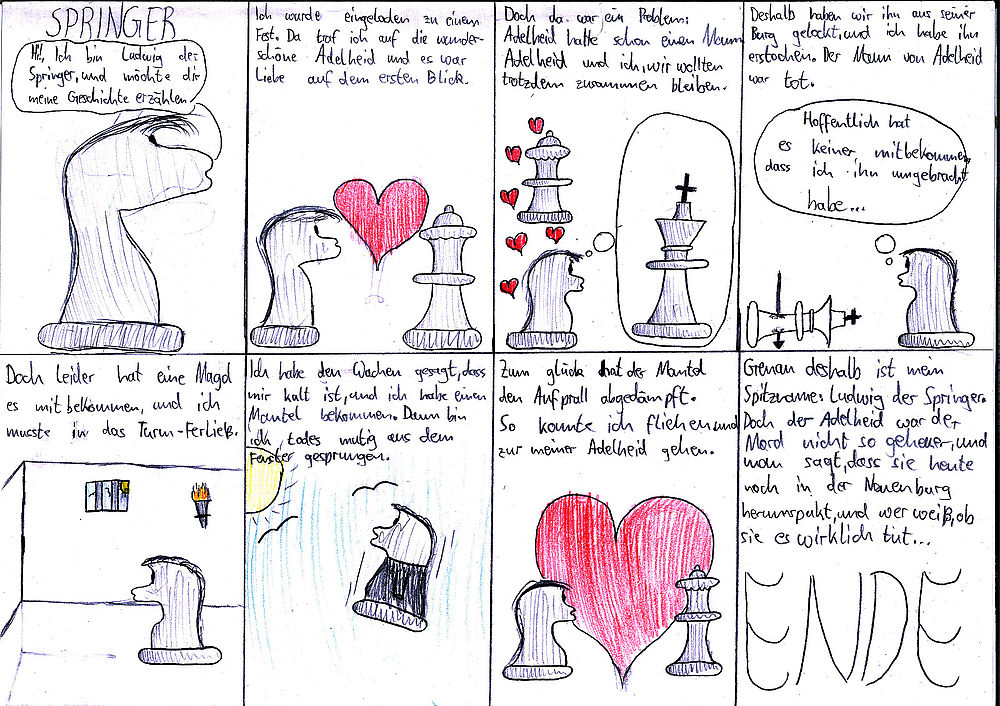 SPRINGER
Hi!, Ich bin Ludwig der
Springer, und möchte dir
meine Geschichte erzählen
Ich wurde eingeladen zu einem
Fest. Da traf ich auf die wunder-
schöne Adelheid und es war
Liebe auf dem ersten Blick.
Doch da war ein Problem:
Adelheid hatte schon einen Mann
Adelheid und ich, wir wollten
trotzdem zusammen bleiben.
Deshalb haben wir ihn aus seiner
Burg gelockt, und ich habe ihn
erstochen. Der Mann von Adelheid
war tot.
Hoffentlich hat
es keiner mitbekommen,
dass ich ihn umgebracht
habe...
Doch leider hat eine Magd
es mitbekommen, und ich
musste in das Turm-Ferließ.
Ich habe den Wachen gesagt, dass
mir kalt ist, und ich habe einen
Mantel bekommen. Dann bin
ich todes mutig aus dem
Fenster gesprungen.
Zum glück hat der Mantel
den Aufprall abgedämpft.
So konnte ich fliehen und
zur meiner Adelheid gehen.
Grenau deshalb ist mein
Spitzname: Ludwig der Springer.
Doch der Adelheid war der
Mord nicht so geheuer, und
man sagt, dass sie heute
noch in der Nauenburg
herumspukt, und wer weiß, ob
sie es wirklich tut...
ENDE